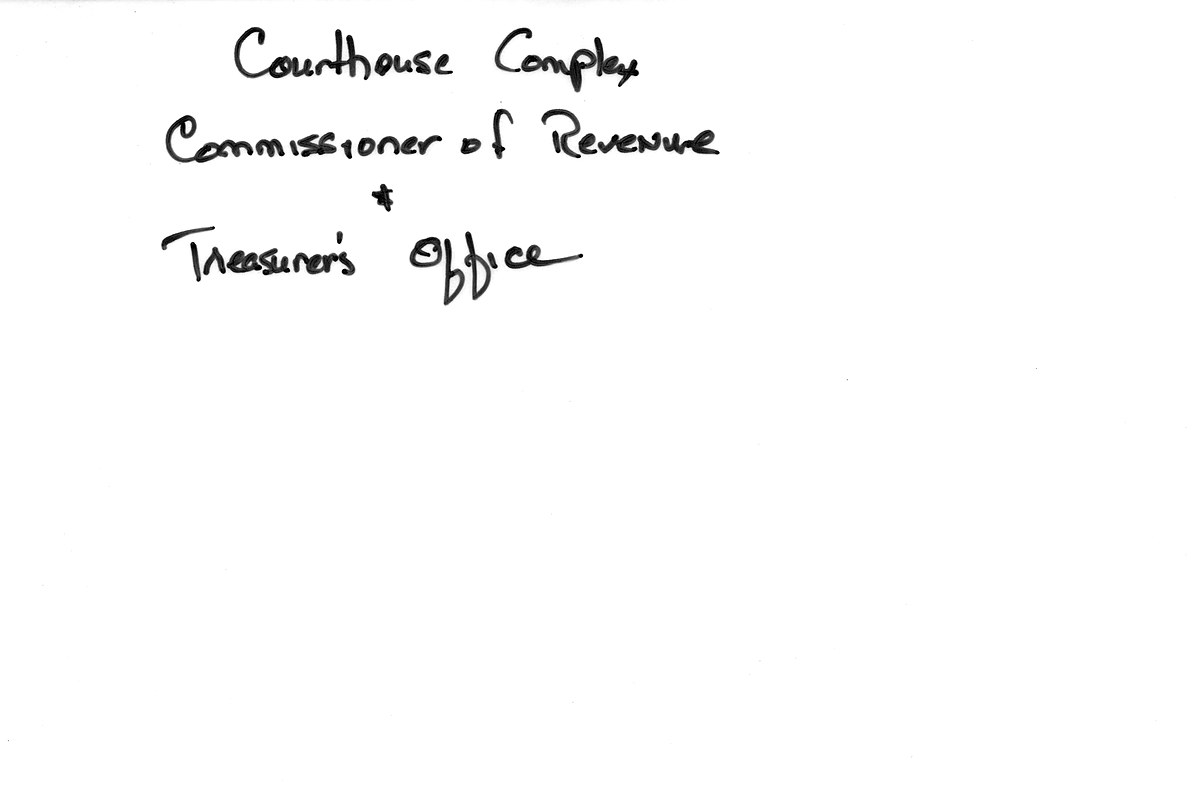 Courthouse Complex
Commissioner of Revenue
+
Treasurer's Office